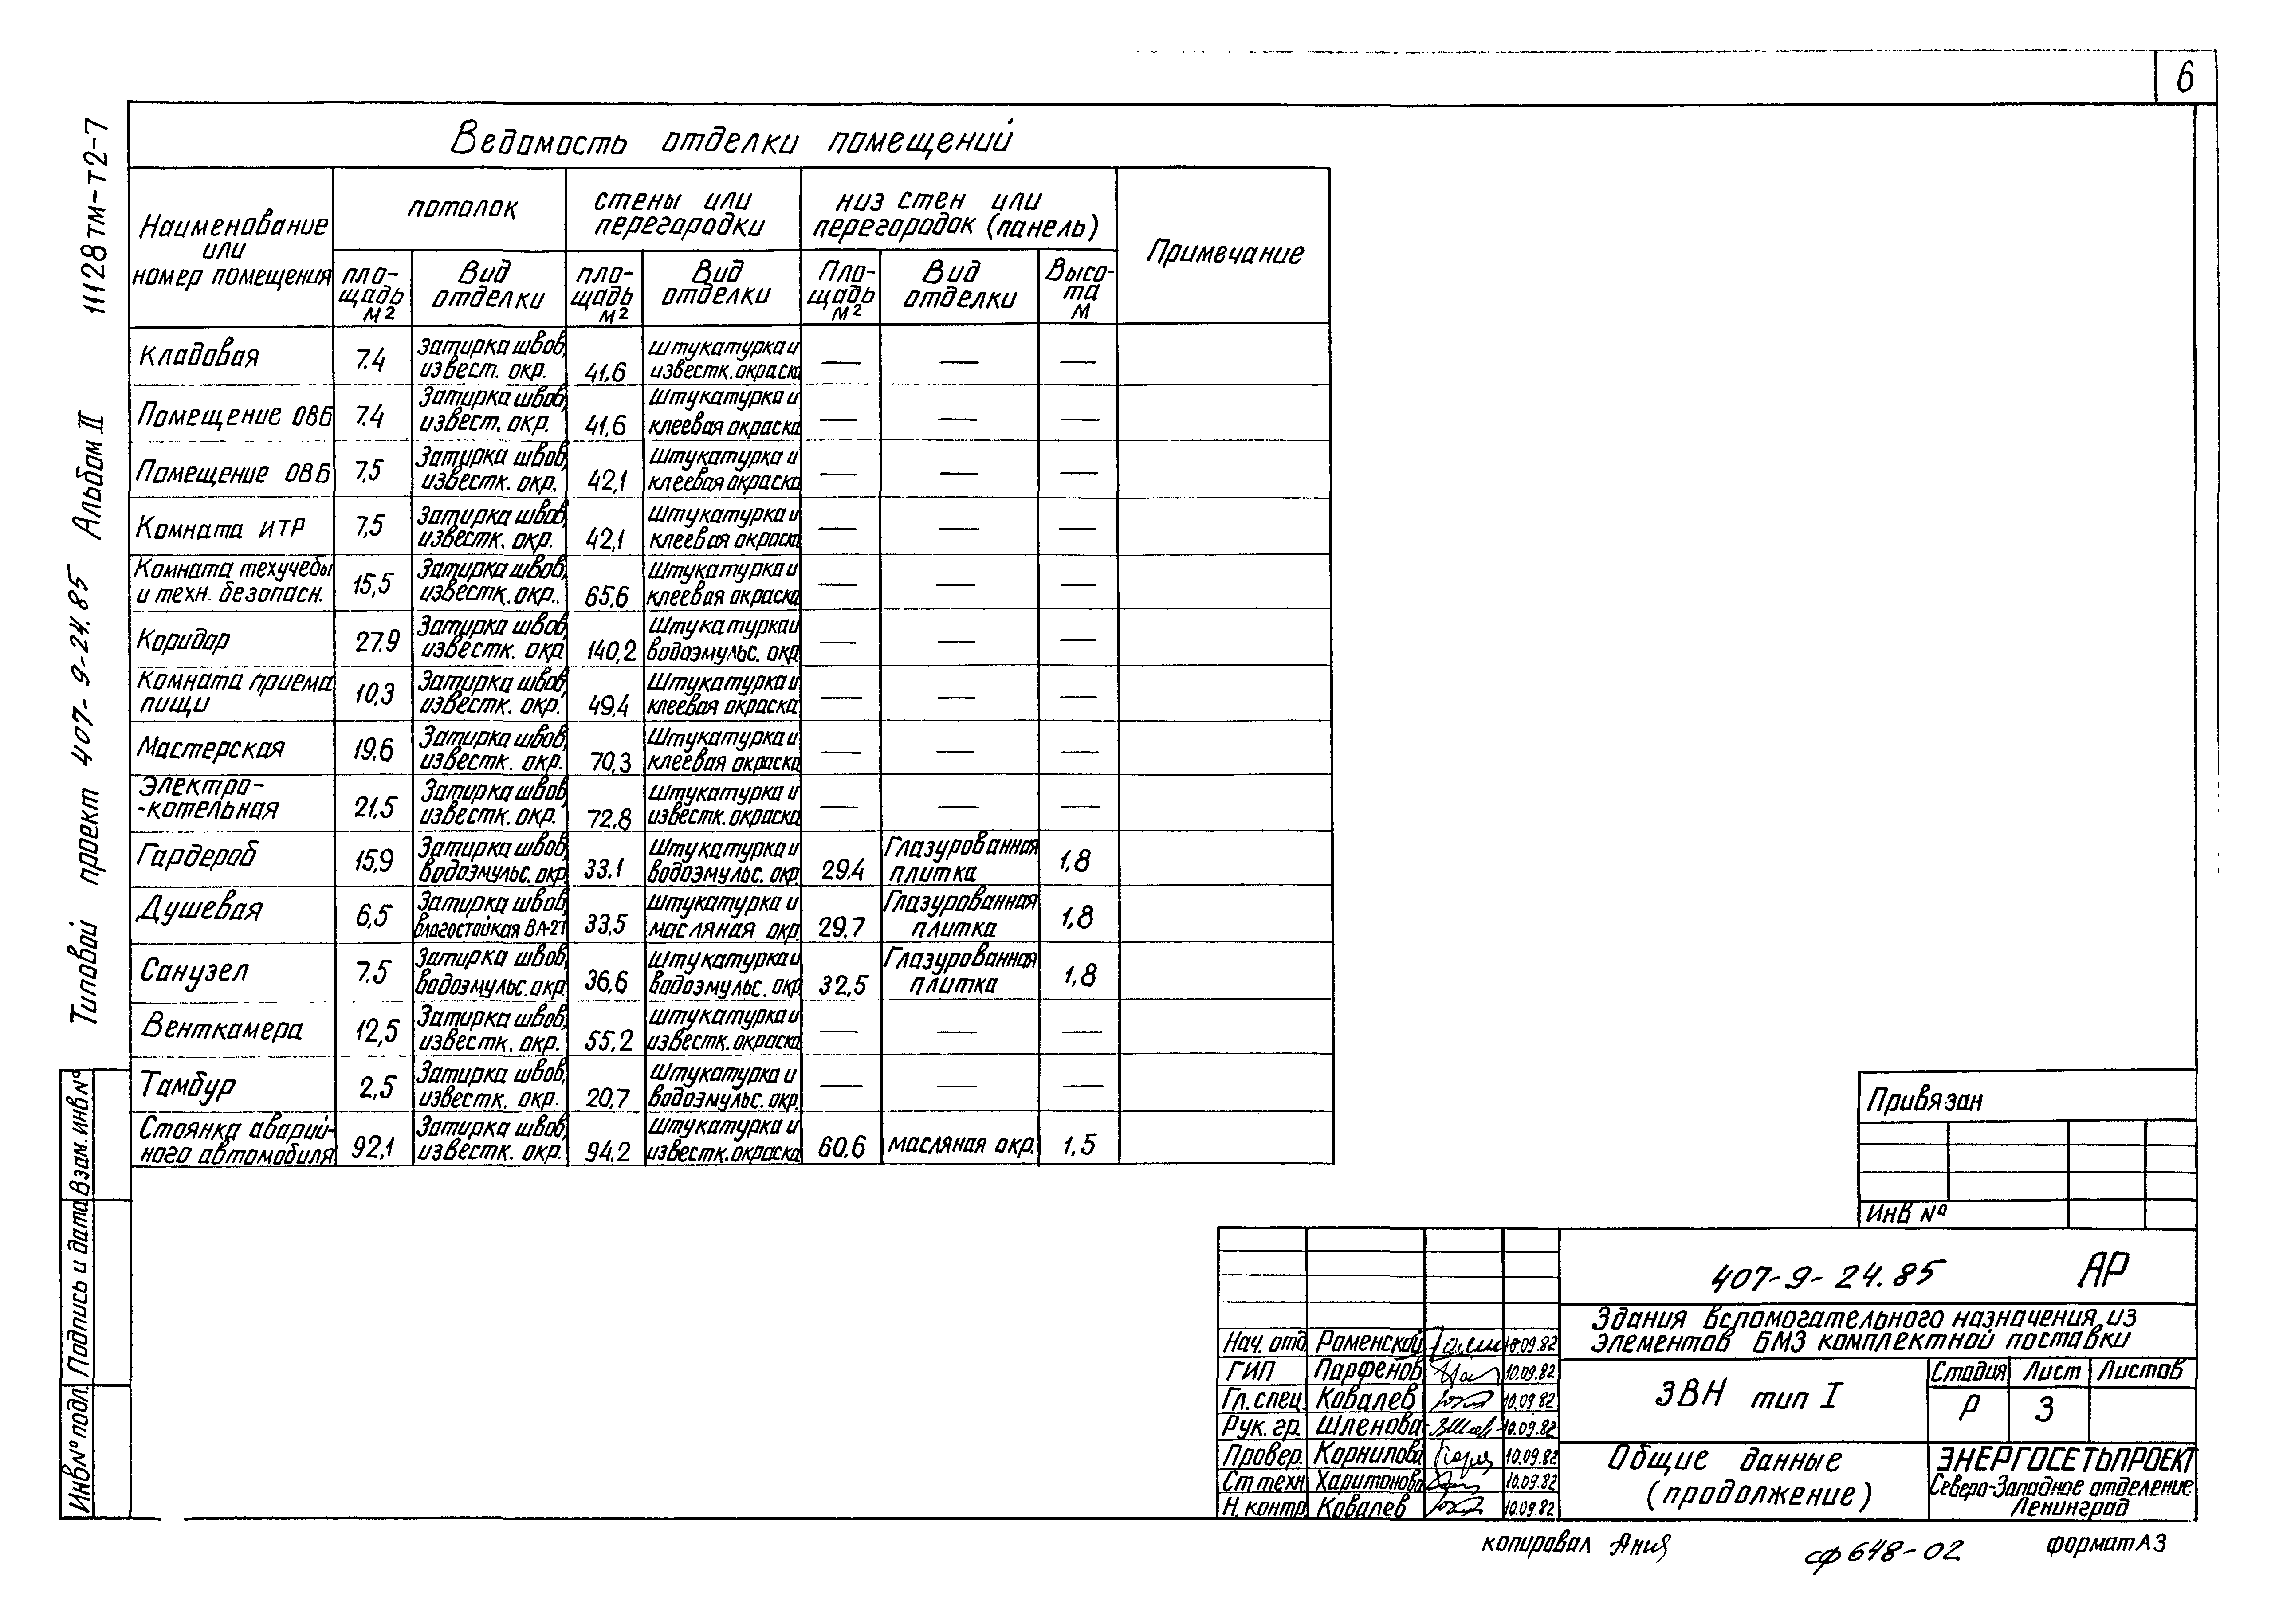 6
11128тм-т2-7
Альбом II
Типовой проект 407-9-24.85
Ведомость отделки помещений
Наименование
или
номер помещения
потолок
стены или
перегородки
низ стен или
перегородок (панель)
Примечание
пло-
щадь
м2
Вид
отделки
пло-
щадь
м2
Вид
отделки
Пло-
щадь
м2
Вид
отделки
Высо-
та
м
Кладовая
7.4
Затирка швов,
извест. окр.
41,6
штукатурка и
известк. окраска
— — —
Помещение ОВБ
7.4
Затирка швов,
извест. окр.
41,6
штукатурка и
клеевая окраска
— — —
Помещение ОВБ
7,5
Затирка швов,
известк. окр.
42,1
штукатурка и
клеевая окраска
— — —
Комната ИТР
7,5
Затирка швов,
известк. окр.
42,1
штукатурка и
клеевая окраска
— — —
Комната техучебы
и техн. безопасн.
15,5
Затирка швов,
известк. окр.
65,6
Штукатурка и
клеевая окраска
— — —
Коридор
27.9
Затирка швов,
известк. окр
140,2
Штукатурка и
водоэмульс. окр.
— — —
Комната приема
пищи
10,3
Затирка швов,
известк. окр.
49,4
Штукатурка и
клеевая окраска
— — —
Мастерская
19,6
Затирка швов,
известк. окр.
70,3
Штукатурка и
клеевая окраска
— — —
Электро-
-котельная
21,5
Затирка швов,
известк. окр.
72,8
штукатурка и
известк. окраска
— — —
Гардероб
15,9
Затирка швов,
водоэмульс. окр.
33.1
Штукатурка и
водоэмульс. окр.
29,4
Глазурованная
плитка
1,8
Душевая
6,5
Затирка швов,
влагостойкая ВА-27
33,5
штукатурка и
масляная окр.
29,7
Глазурованная
плитка
1,8
Санузел
7,5
Затирка швов,
водоэмульс. окр.
36,6
штукатурка и
водоэмульс. окр.
32,5
Глазурованная
плитка
1,8
Венткамера
12,5
Затирка швов,
известк. окр.
55,2
штукатурка и
известк. окраска
— — —
Тамбур
2,5
Затирка швов,
известк. окр.
20,7
штукатурка и
водоэмульс. окр.
— — —
Стоянка аварий-
ного автомобиля
92,1
Затирка швов,
известк. окр.
94.2
штукатурка и
известк. окраска
60,6
масляная окр.
1,5
Взам. инв №
Подпись и дата
Инв № подл.
Привязан
Инв №
407-9-24.85 АР
Здания вспомогательного назначения из
элементов БМЗ комплектной поставки
Нач. отд. Раменский 10.09.82
ГИП Парфенов 10.09.82
Гл. спец. Ковалев 10.09.82
Рук. гр. Шленова 10.09.82
Провер. Корнилова 10.09.82
Ст.техн. Харитонова 10.09.82
Н. контр. Ковалев 10.09.82
ЗВН тип I
Стадия Лист Листов
Р 3
Общие данные
(продолжение)
ЭНЕРГОСЕТЬПРОЕКТ
Северо-Западное отделение
Ленинград
копировал Ания
сф 648-02
формат А3